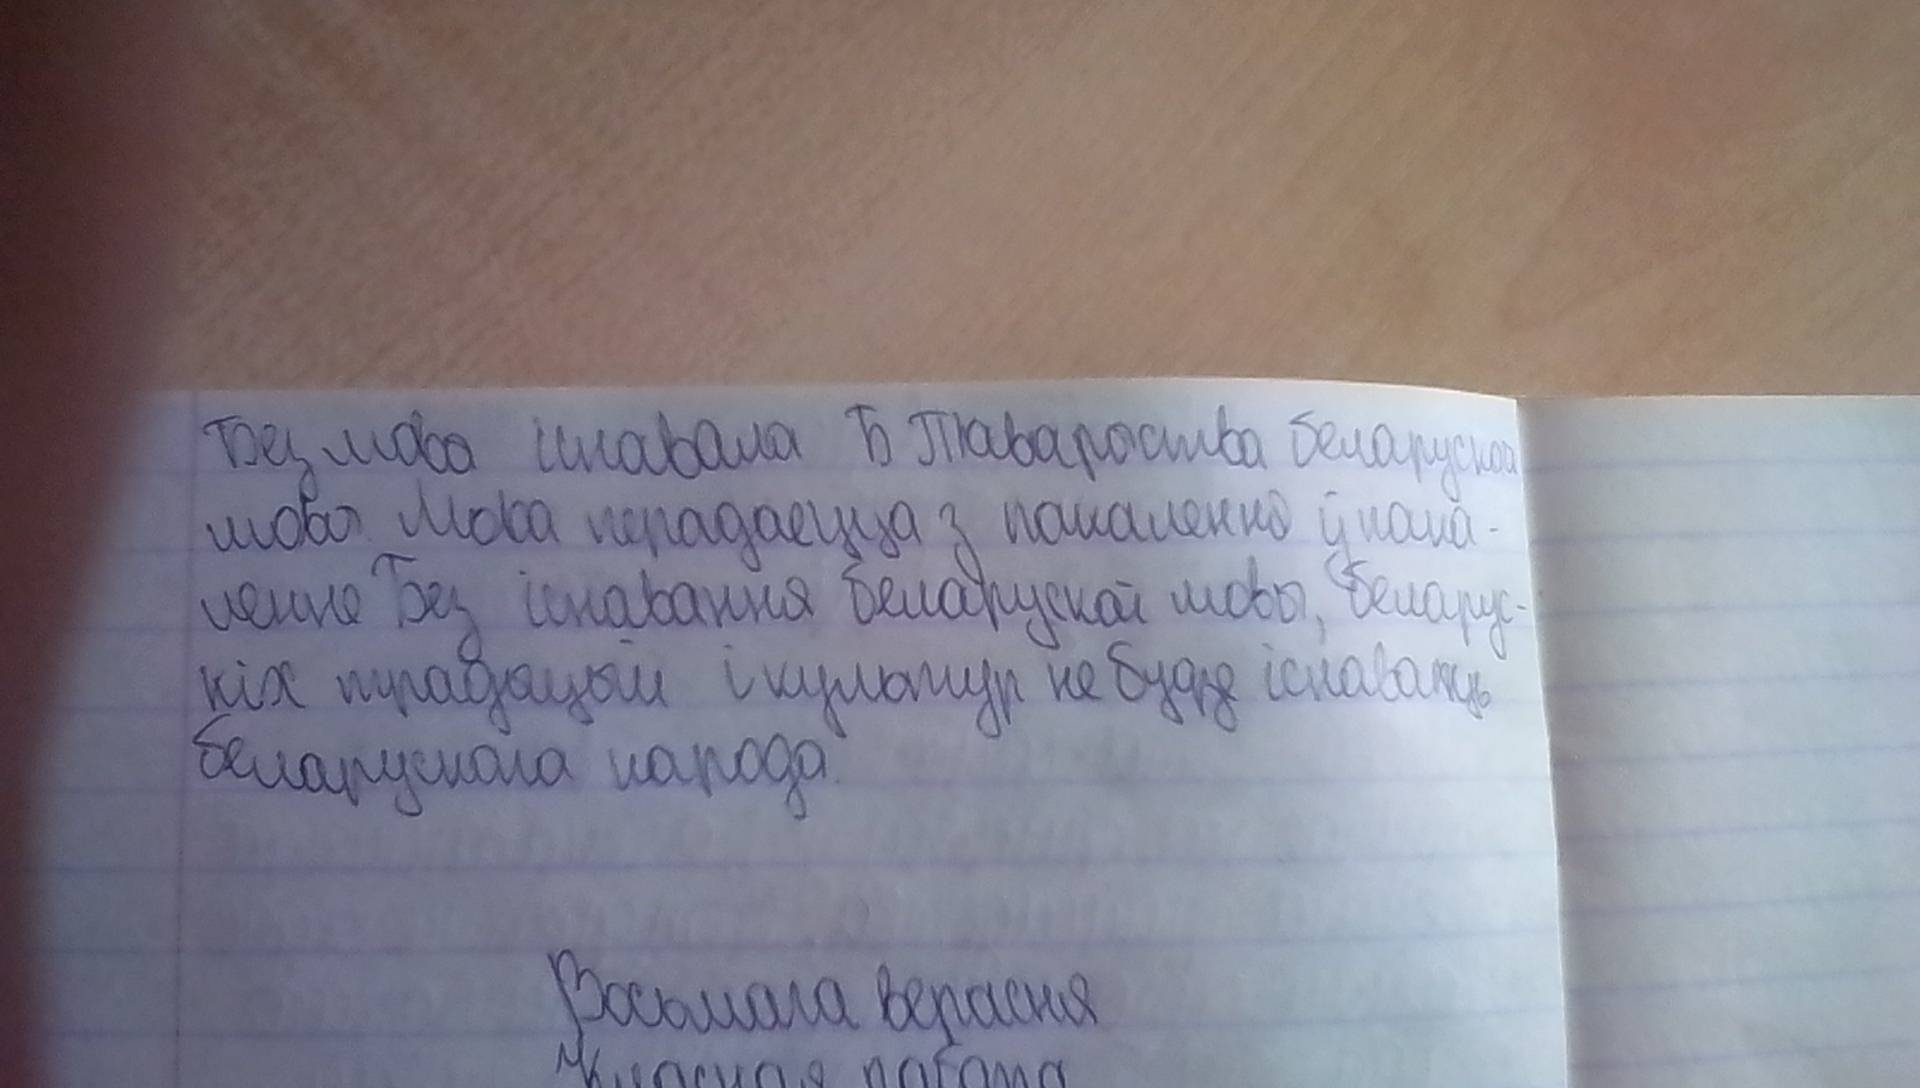 Без мова існавала Б Таварроства беларускай
мовы. Мова перадаецца з пакалення ў пака-
ленне Без існавання беларускай мовы, беларус-
кіх традыцый і культур не будзе існаваць
беларускага народа.
Восьмага верасня
Класная работа